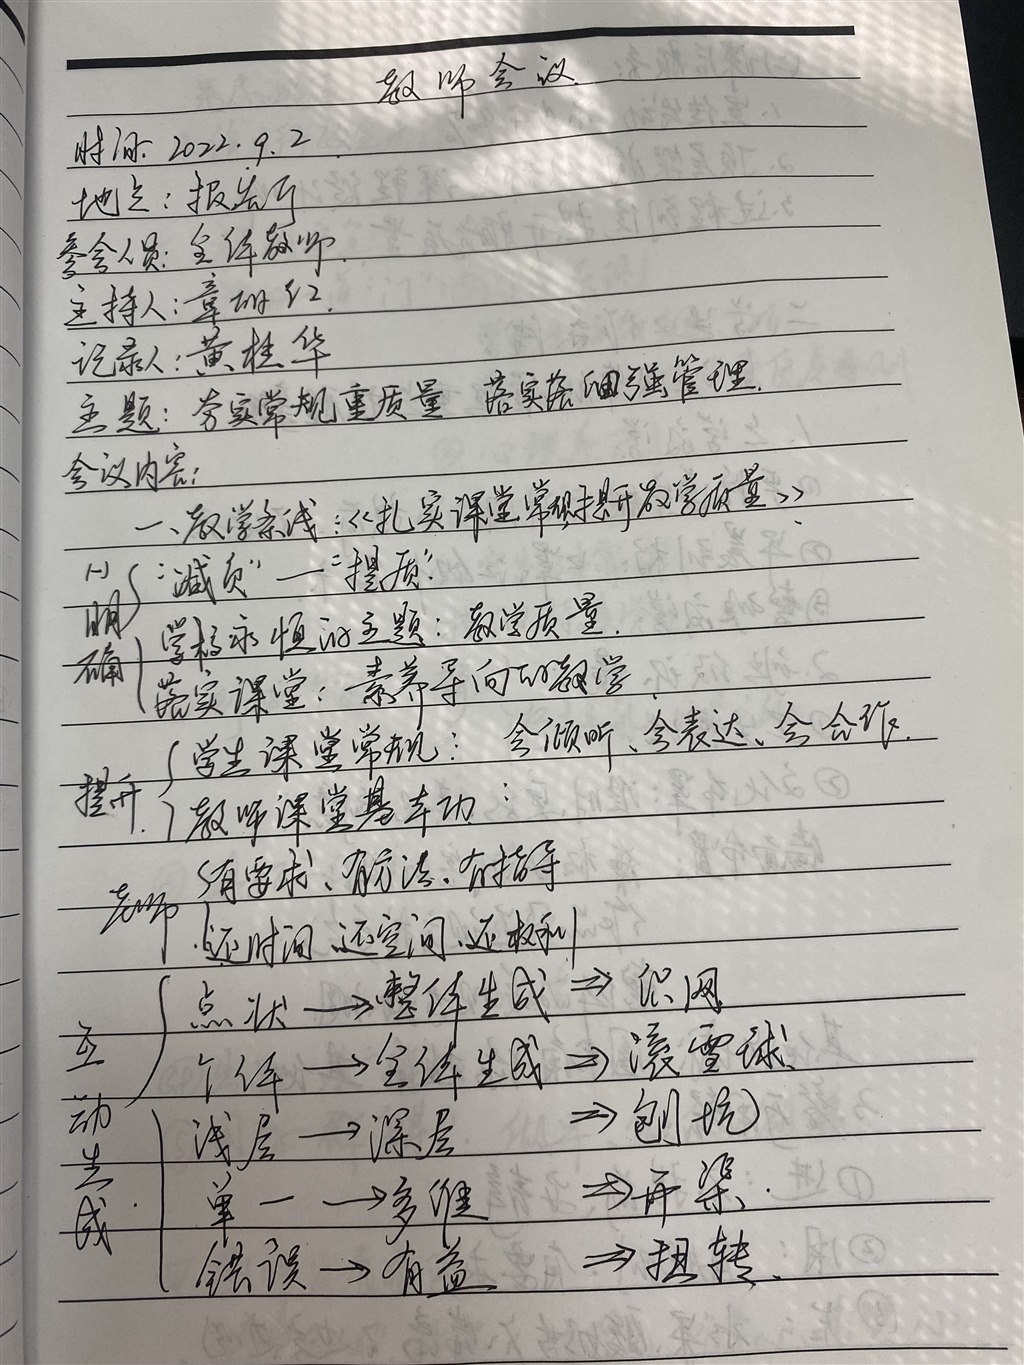 教师会议
时间: 2022.9.2
地点：报告厅
参会人员：全体教师.
主持人：章 红.
记录人：黄桂华
主题：夯实常规重质量 落实落细强管理.
会议内容：
一、教学条线：《扎实课堂常规提升教学质量》
(一)明确
“减负”—“提质”.
学校永恒的主题：教学质量.
落实课堂：素养导向的教学.
提升.
学生课堂常规： 会倾听、会表达、会合作.
教师课堂基本功：
老师
有要求、有方法、有指导
还时间、还空间、还权利
互动生成.
点状→整体生成⇒织网
个体→全体生成⇒滚雪球
浅层→深层 ⇒刨坑
单一→多维 ⇒开渠.
错误→有益 ⇒扭转.